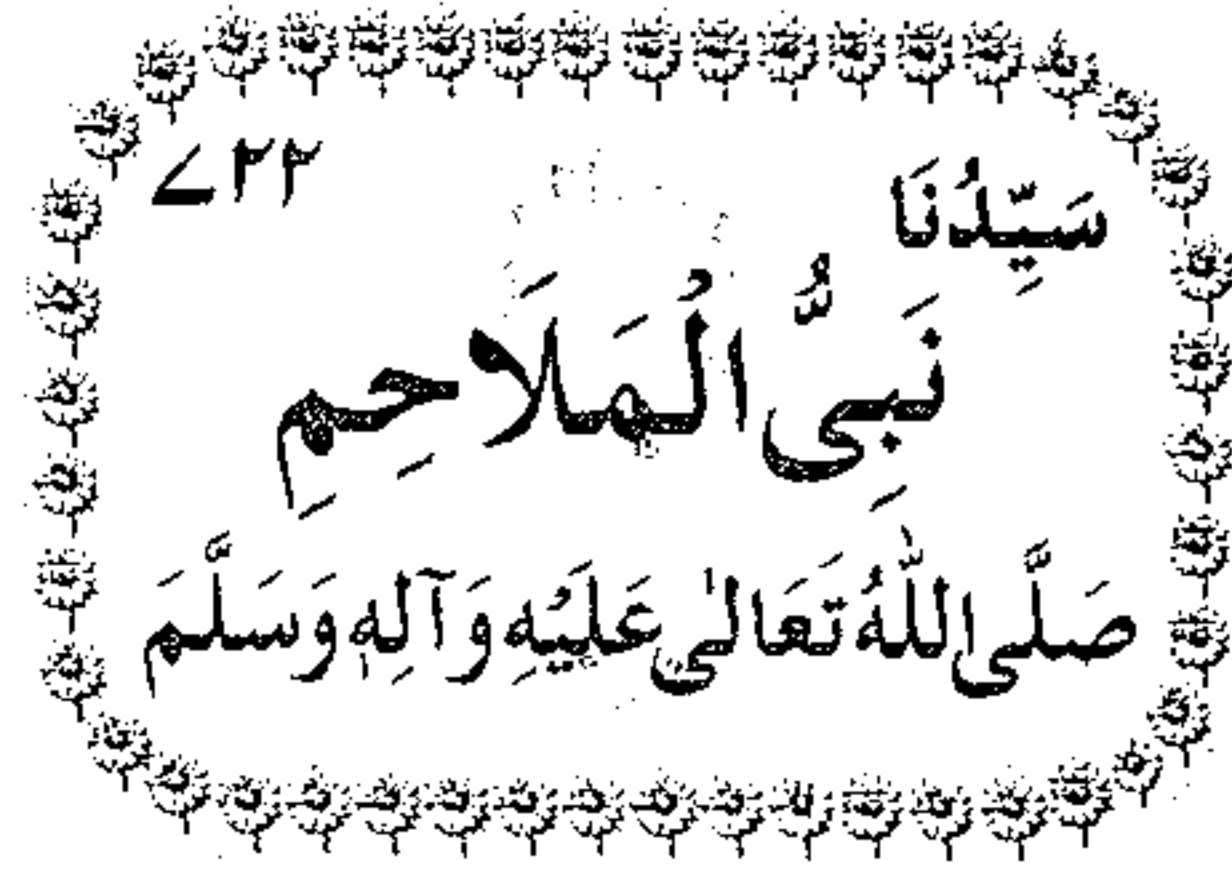 ۷۲۲
سَيِّدُنَا
نَبِىُّ الْمَلَاحِمِ
صَلَّى اللّٰهُ تَعَالىٰ عَلَيْهِ وَآلِهٖ وَسَلَّمَ